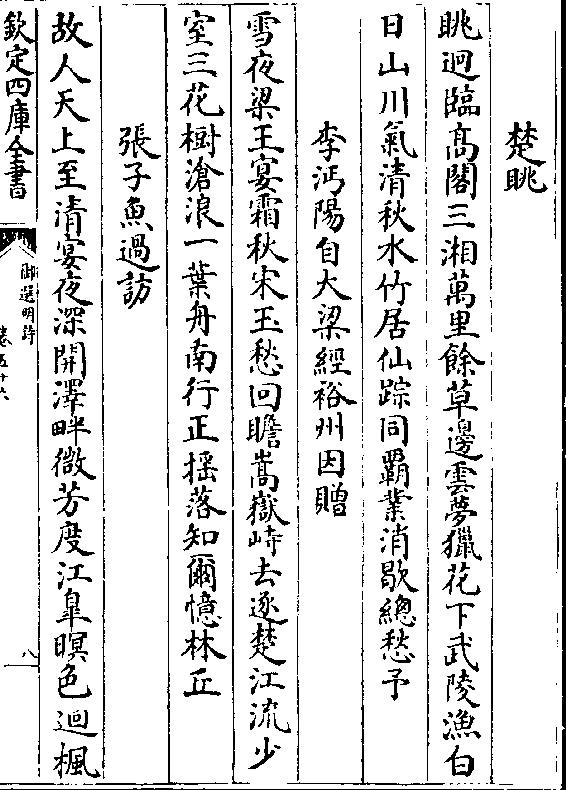 楚眺
眺迥臨髙閣三湘萬里餘草邊雲夢獵花下武陵漁白
日山川氣清秋水竹居仙踪同覇業消歇總愁予
李沔陽自大梁經裕州因贈
雪夜梁王宴霜秋宋玉愁回瞻嵩嶽峙去逐楚江流少
室三花樹滄浪一葉舟南行正揺落知爾憶林丘
張子魚過訪
故人天上至清宴夜深開澤畔微芳度江臯暝色迴楓
欽定四庫全書
御選明詩
卷五十六
八